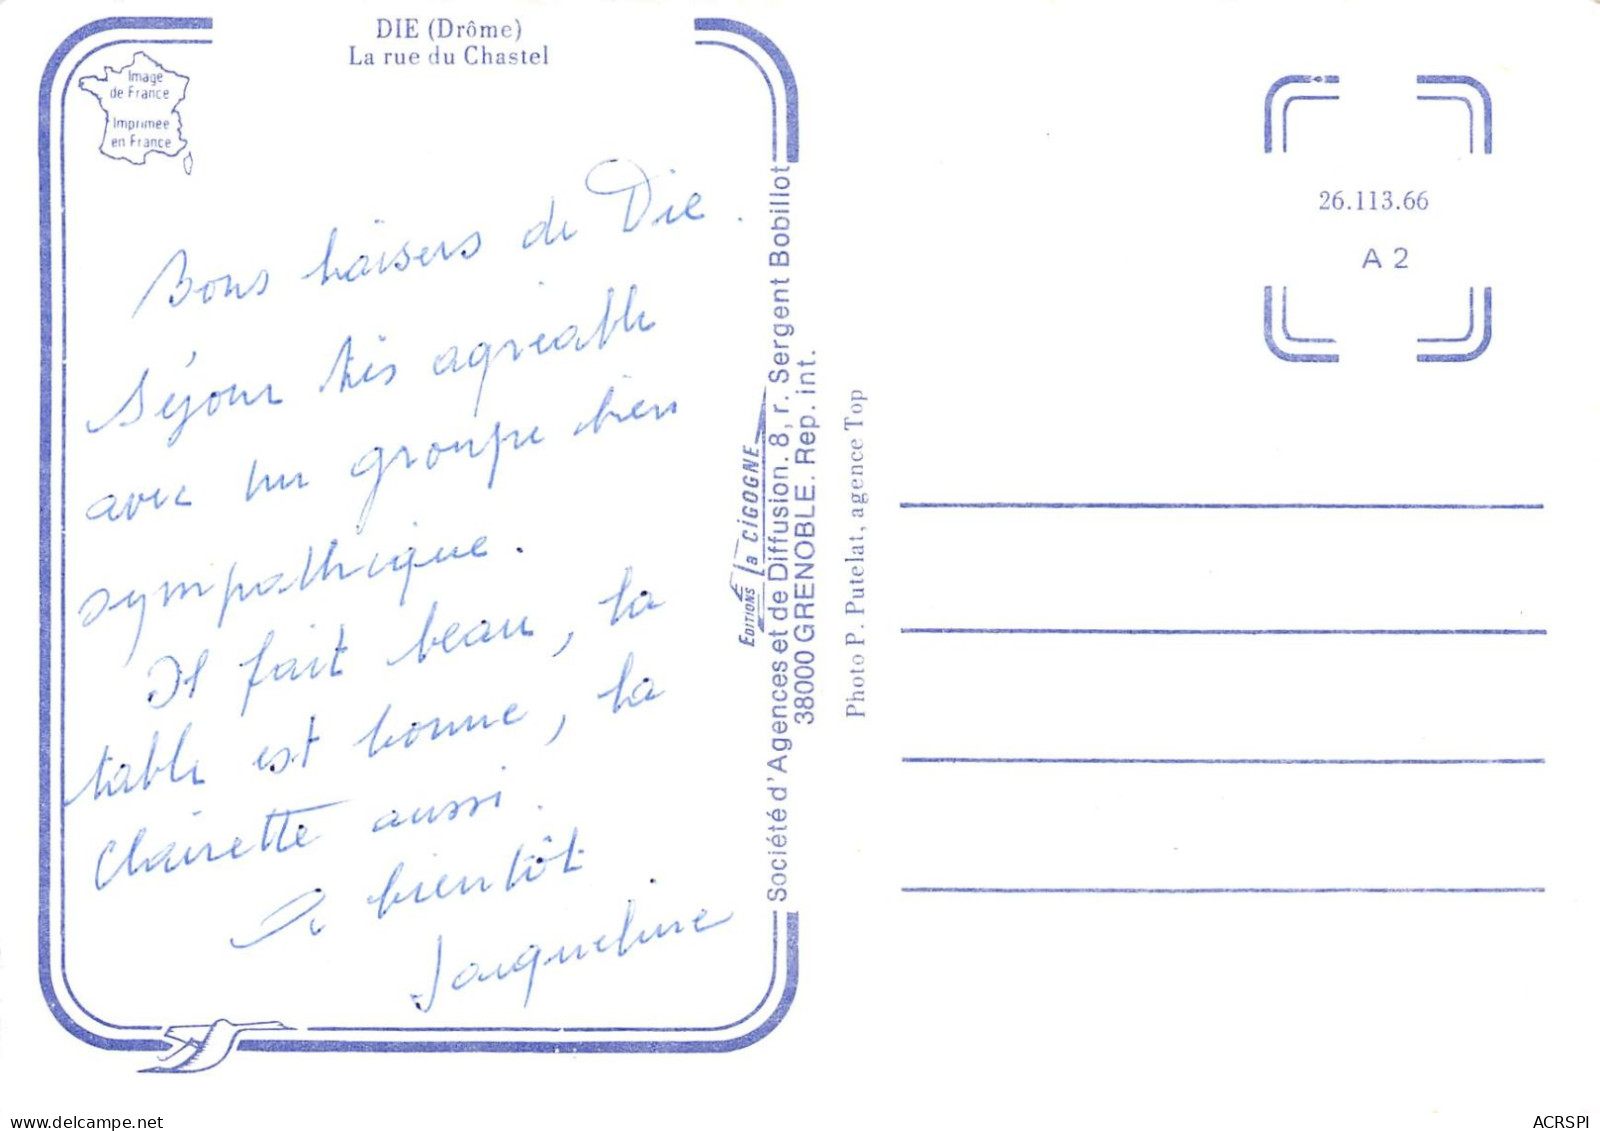 DIE (Drôme)
La rue du Chastel
Image
de France
Imprimée
en France
Bons baisers de Die.
Séjour très agréable
avec un groupe bien
sympathique.
Il fait beau, la
table est bonne, la
Clairette aussi.
A bientôt
Jacqueline
EDITIONS la CIGOGNE
Société d'Agences et de Diffusion. 8, r. Sergent Bobillot
38000 GRENOBLE. Rep. int.
Photo P. Putelat, agence Top
26.113.66
A 2
ACRSPI